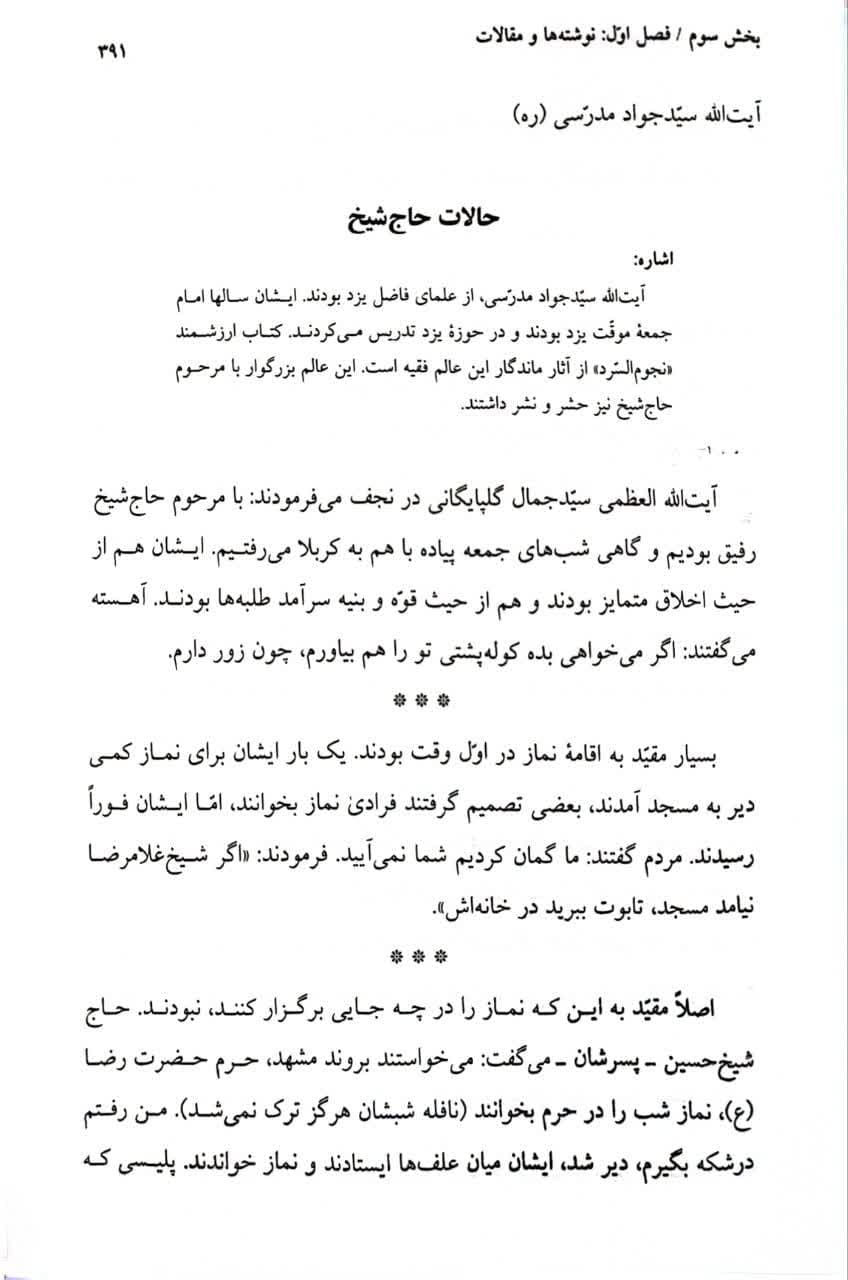 بخش سوم / فصل اوّل: نوشته‌ها و مقالات
۳۹۱
آیت‌الله سیّدجواد مدرّسی (ره)
حالات حاج‌شیخ
اشاره:
آیت‌الله سیّدجواد مدرّسی، از علمای فاضل یزد بودند. ایشان سالها امام
جمعهٔ موقّت یزد بودند و در حوزهٔ یزد تدریس می‌کردند. کتاب ارزشمند
«نجوم‌السّرد» از آثار ماندگار این عالم فقیه است. این عالم بزرگوار با مرحوم
حاج‌شیخ نیز حشر و نشر داشتند.
آیت‌الله العظمی سیّدجمال گلپایگانی در نجف می‌فرمودند: با مرحوم حاج‌شیخ
رفیق بودیم و گاهی شب‌های جمعه پیاده با هم به کربلا می‌رفتیم. ایشان هم از
حیث اخلاق متمایز بودند و هم از حیث قوّه و بنیه سرآمد طلبه‌ها بودند. آهسته
می‌گفتند: اگر می‌خواهی بده کوله‌پشتی تو را هم بیاورم، چون زور دارم.
* * *
بسیار مقیّد به اقامهٔ نماز در اوّل وقت بودند. یک بار ایشان برای نماز کمی
دیر به مسجد آمدند، بعضی تصمیم گرفتند فرادیٰ نماز بخوانند، امّا ایشان فوراً
رسیدند. مردم گفتند: ما گمان کردیم شما نمی‌آیید. فرمودند: «اگر شیخ‌غلامرضا
نیامد مسجد، تابوت ببرید در خانه‌اش».
* * *
اصلاً مقیّد به این که نماز را در چه جایی برگزار کنند، نبودند. حاج
شیخ‌حسین ـ پسرشان ـ می‌گفت: می‌خواستند بروند مشهد، حرم حضرت رضا
(ع)، نماز شب را در حرم بخوانند (نافله شبشان هرگز ترک نمی‌شد). من رفتم
درشکه بگیرم، دیر شد، ایشان میان علف‌ها ایستادند و نماز خواندند. پلیسی که